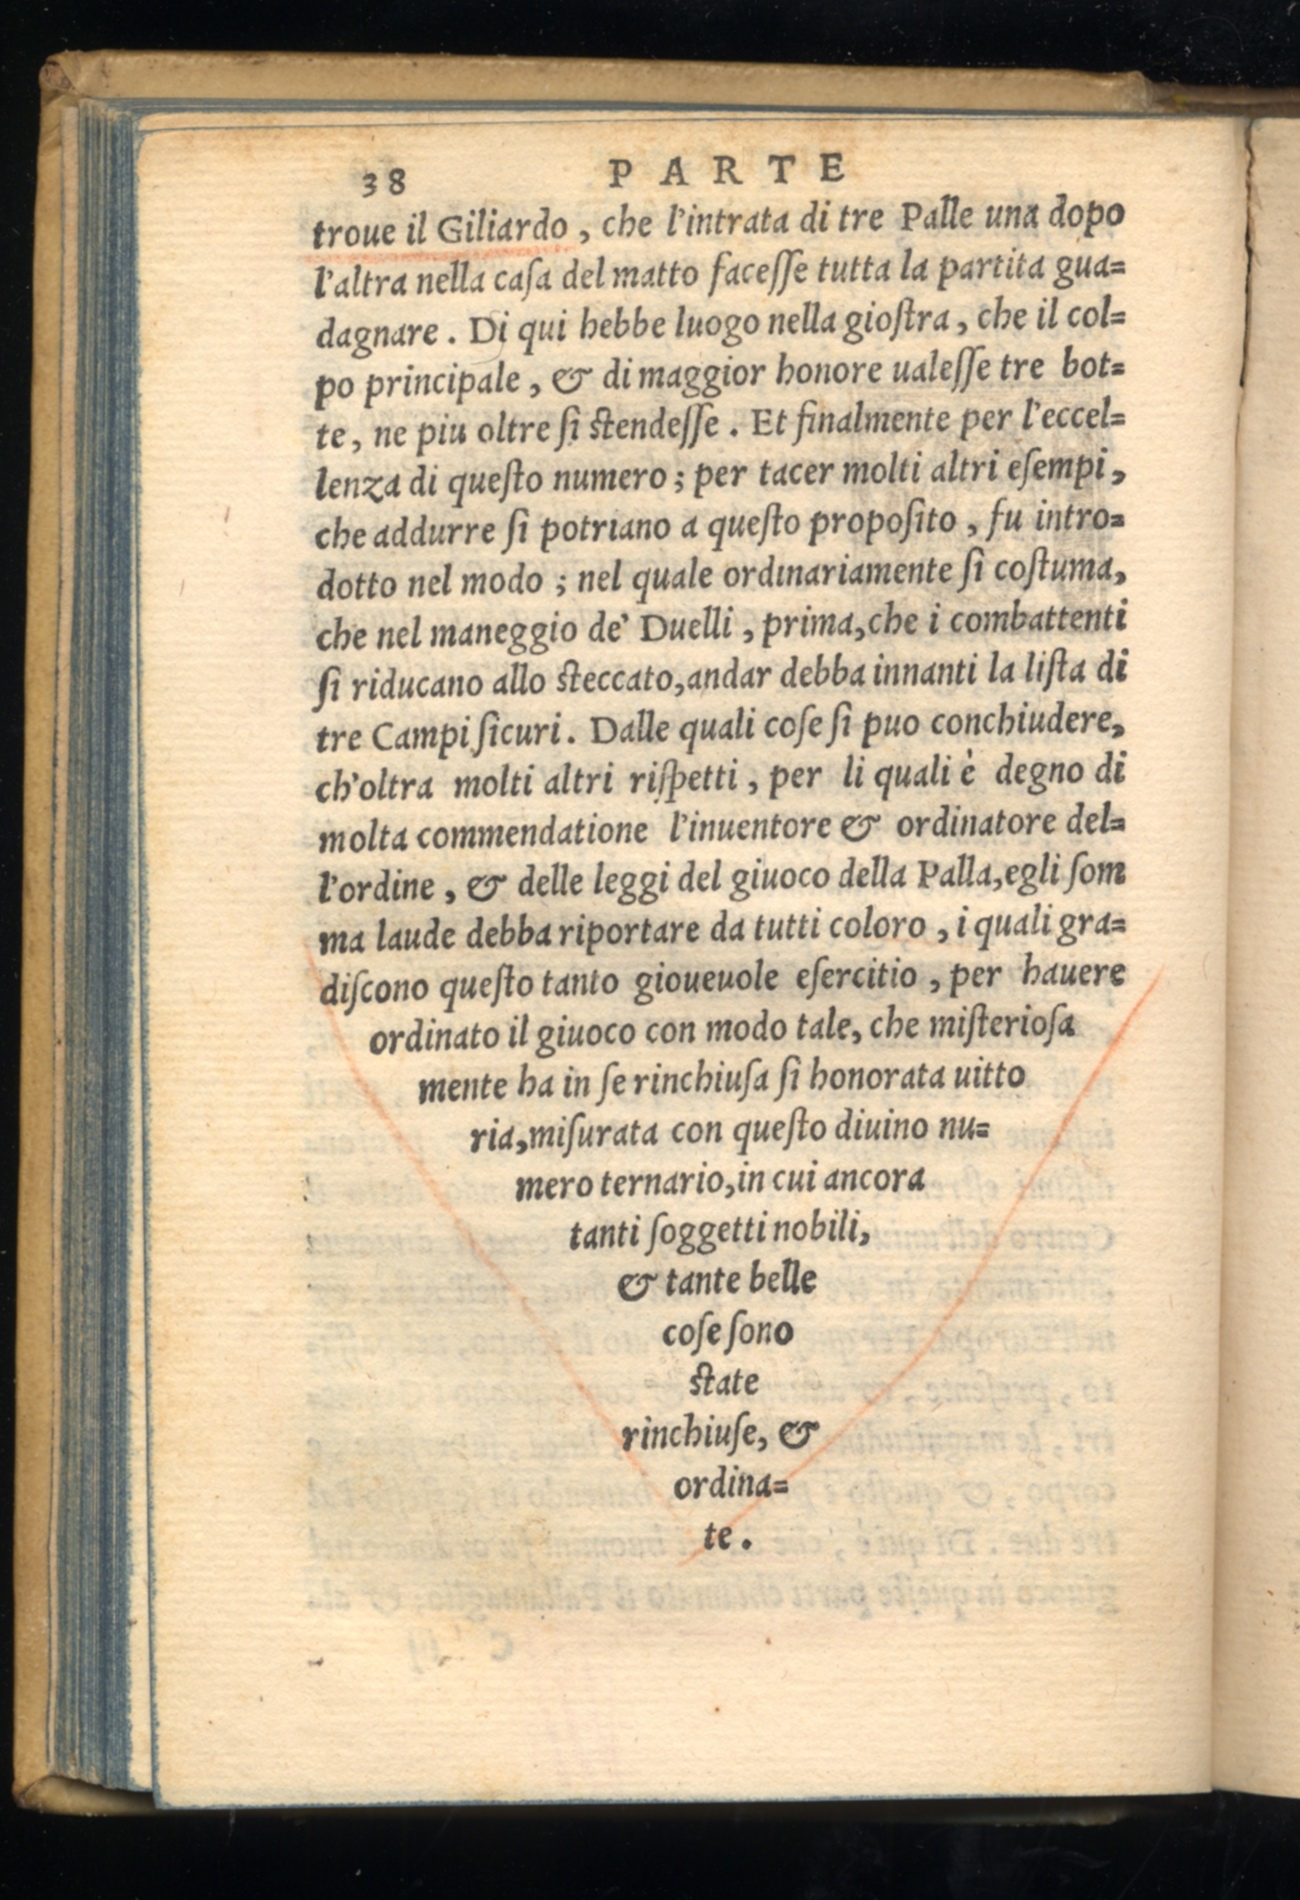 38 PARTE
troue il Giliardo, che l'intrata di tre Palle una dopo
l'altra nella caſa del matto faceſſe tutta la partita gua=
dagnare. Di qui hebbe luogo nella gioſtra, che il col=
po principale, & di maggior honore ualeſſe tre bot=
te, ne piu oltre ſi ſtendeſſe. Et finalmente per l'eccel=
lenza di queſto numero; per tacer molti altri eſempi,
che addurre ſi potriano a queſto propoſito, fu intro=
dotto nel modo; nel quale ordinariamente ſi coſtuma,
che nel maneggio de' Duelli, prima, che i combattenti
ſi riducano allo ſteccato, andar debba innanti la liſta di
tre Campi ſicuri. Dalle quali coſe ſi puo conchiudere,
ch'oltra molti altri riſpetti, per li quali è degno di
molta commendatione l'inuentore & ordinatore del=
l'ordine, & delle leggi del giuoco della Palla, egli ſom
ma laude debba riportare da tutti coloro, i quali gra=
diſcono queſto tanto gioueuole eſercitio, per hauere
ordinato il giuoco con modo tale, che miſterioſa
mente ha in ſe rinchiuſa ſi honorata uitto
ria, miſurata con queſto diuino nu=
mero ternario, in cui ancora
tanti ſoggetti nobili,
& tante belle
coſe ſono
ſtate
rinchiuſe, &
ordina=
te.